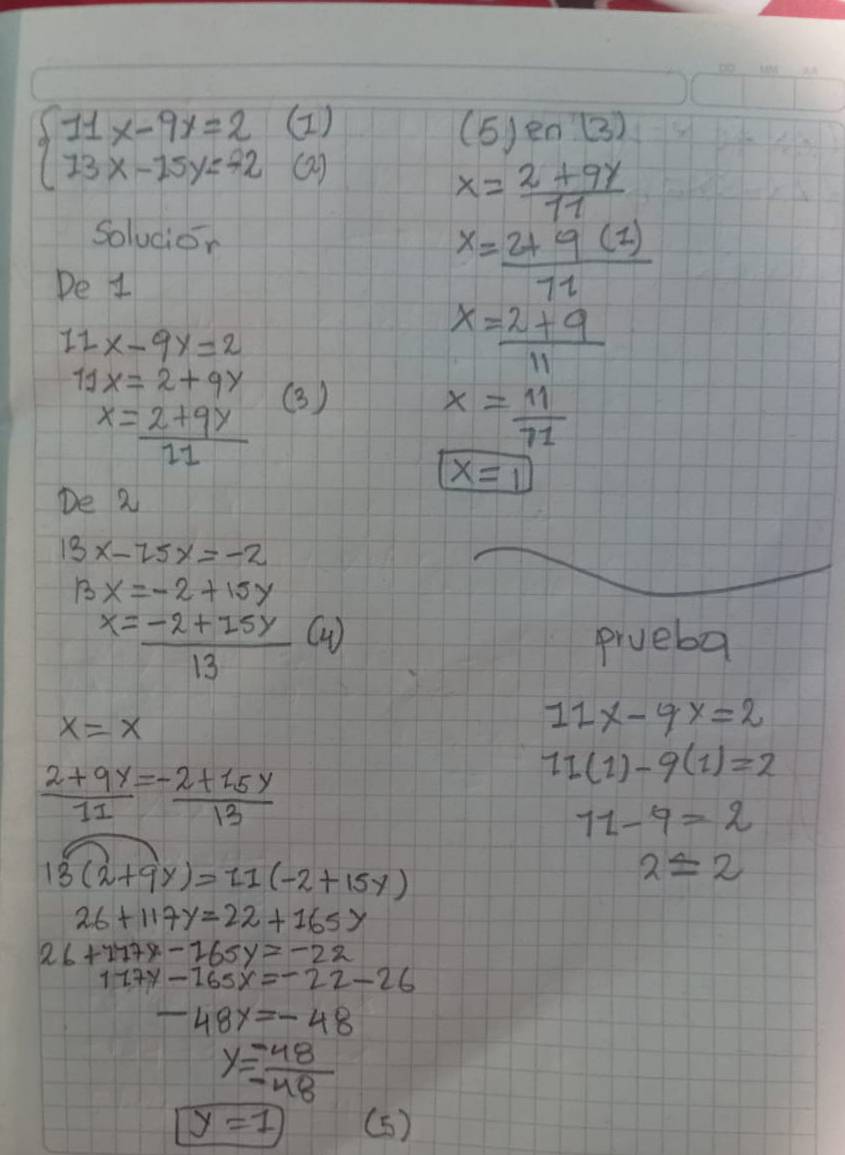 DD MM AA
11x-9y=2 (1)
13x-15y=-2 (2)
Solución
De 1
11x-9y=2
11x=2+9y
x=2+9y (3)
11
De 2
13x-15y=-2
13x=-2+15y
x=-2+15y (4)
13
x=x
2+9y=-2+15y
11 13
13(2+9y)=11(-2+15y)
26+117y=22+165y
26+117y-165y=-22
117y-165y=-22-26
-48y=-48
y=-48
-48
y=1 (5)
(5) en (3)
x=2+9y
11
x=2+9(1)
11
x=2+9
11
x=11
11
x=1
prueba
11x-9y=2
11(1)-9(1)=2
11-9=2
2=2